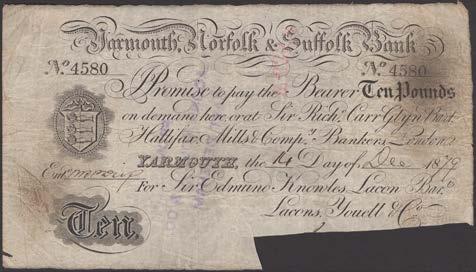 Yarmouth, Norfolk & Suffolk Bank
No 4580 No 4580
I Promise to pay the Bearer Ten Pounds
on demand here, or at Sir Richd. Carr Glyn Bart.
Hallifax, Mills & Compy. Bankers London
Yarmouth, the 4 Day of Dec 1879
For Sir Edmund Knowles Lacon Bart.
Entd.
Lacons, Youell & Co
Ten